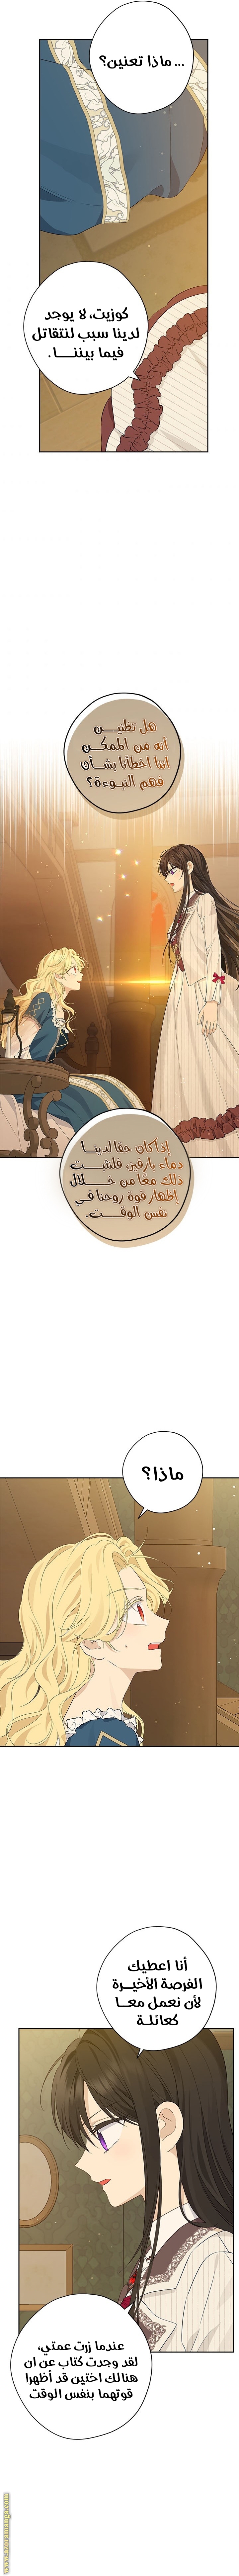 ... ماذا تعنين؟
كوزيت، لا يوجد
لدينا سبب لنتقاتل
فيما بيننـــــا .
هل تظنيـــن
أنه من الممكـــن
اننا اخطأنا بشــأن
فهم النبـوءة؟
إذا كان حقا لدينـا
دماء بارفيز، فلنثبـــت
ذلك معًا من خــــلال
إظهار قوة روحنا فـي
نفس الوقـــت.
ماذا؟
أنا اعطيك
الفرصة الأخيــرة
لأن نعمل معــا
كعائلـة
عندما زرت عمتي،
لقد وجدت كتاب عن ان
هنالك اختين قد أظهرا
قوتهما بنفس الوقت
www.azoramanga.com